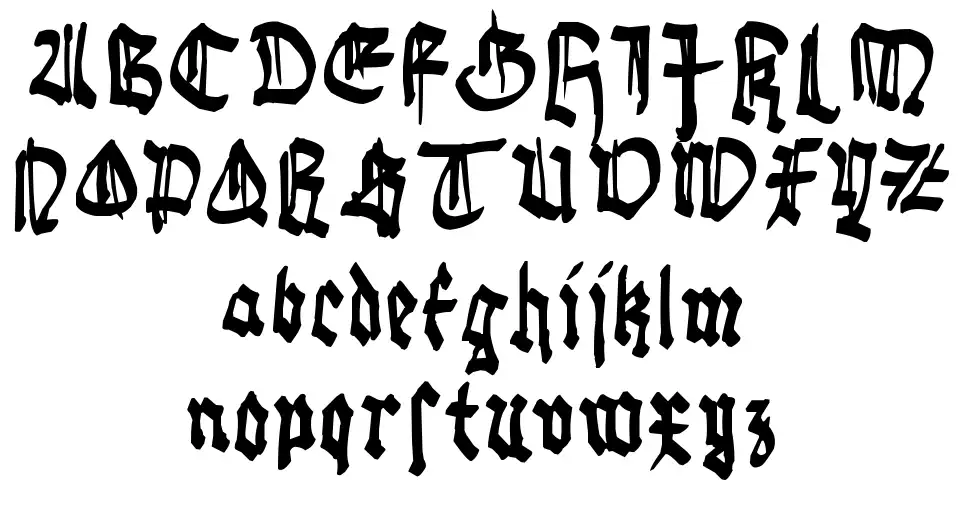 ABCDEFGHIJKLM
NOPQRSTUVWXYZ
abcdefghijklm
nopqrſtuvwxyz